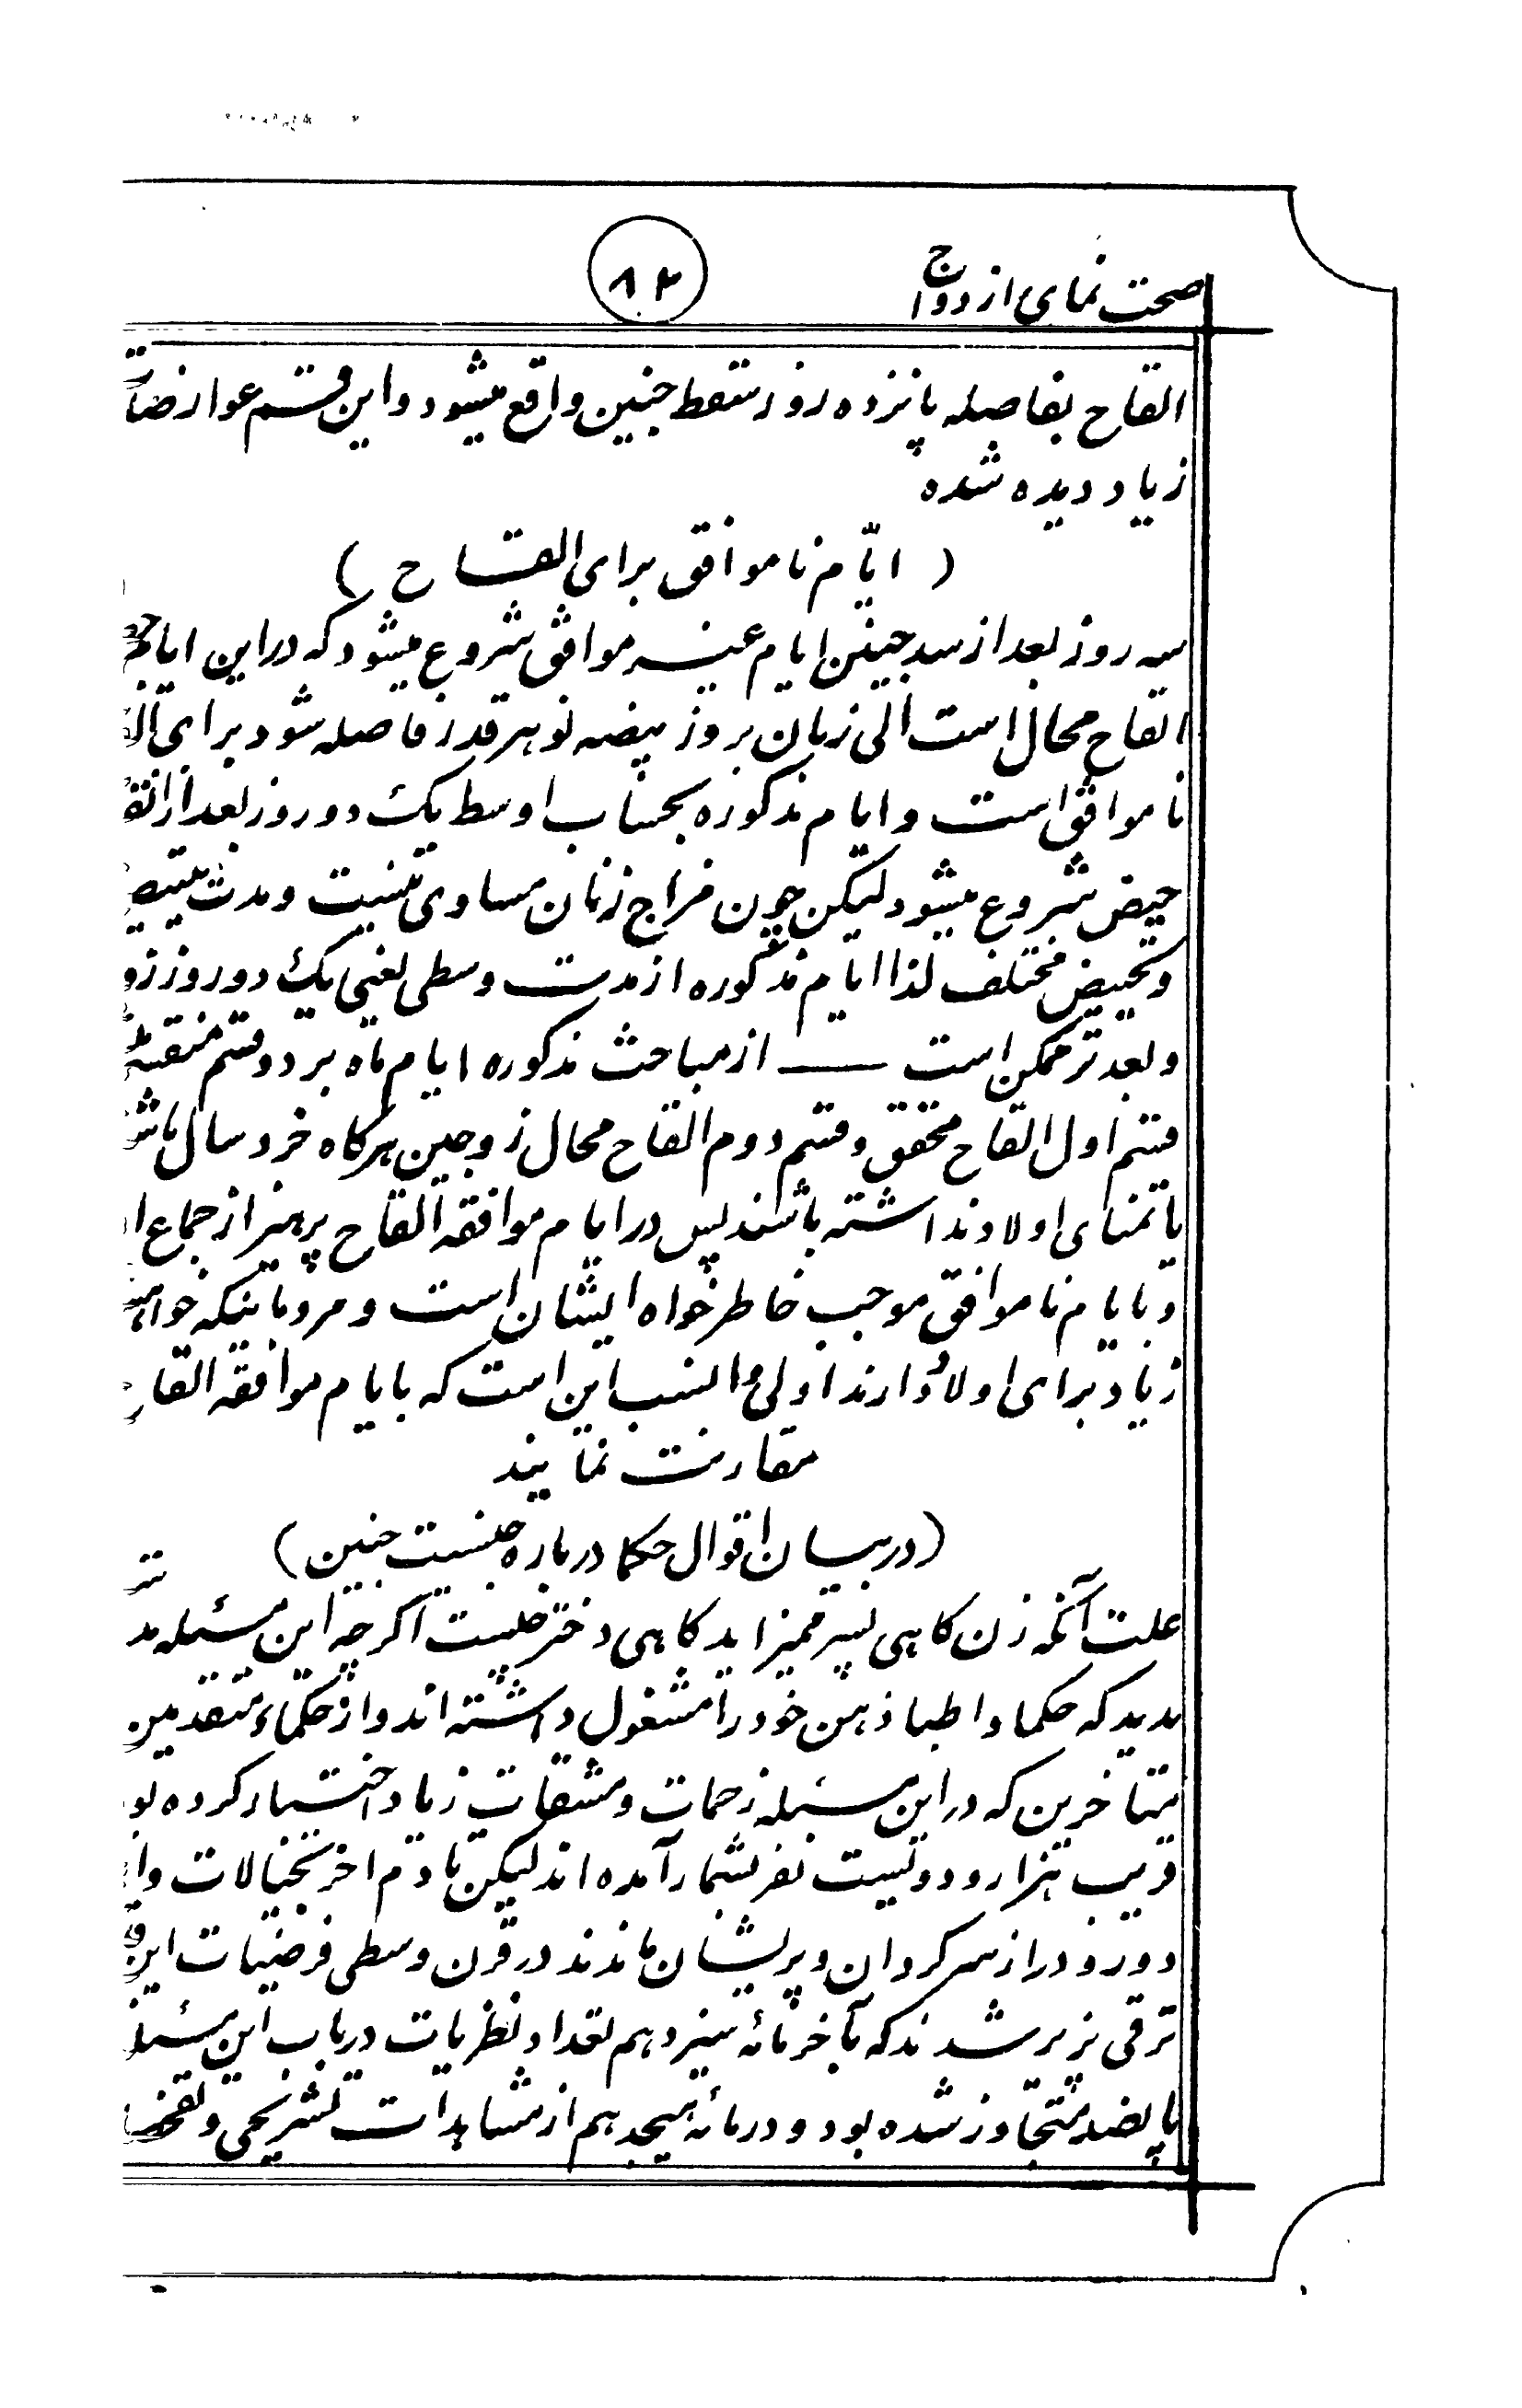 صحت نمای ازدواج
۸۲
القاح بفاصله پانزده روز سقط جنین واقع میشود و این قسم عوارضات
زیاد دیده شده
( ایّام ناموافق برای القاح )
سه روز بعد از سد جبین ایام غیر موافق شروع میشود که در این ایام
القاح محال است الی زمان بروز بیضه نو هر قدر فاصله شود برای
ناموافق است و ایام مذکوره بحساب اوسط یک دو روز بعد از
حیض شروع میشود لیکن چون مزاج زنان مساوی نیست و مدت
و تحییض مختلف لذا ایام مذکوره از مدت وسطی یعنی یک دو روز
و بعدتر ممکن است — از مباحث مذکوره ایام ماه بر دو قسم
قسم اول القاح محقق و قسم دوم القاح محال زوجین هرکاه خرد سال
یا تمنای اولاد نداشته باشند پس در ایام موافقه القاح پرهیز از جماع
و بایام ناموافق موجب خاطر خواه ایشان است و مردمانیکه
زیاد برای اولاد دارند اولی و انسب این است که بایام موافقه القاح
مقارنت نمایند
(در بیان اقوال حکما درباره جنسیت جنین)
علت آنکه زن کاهی پسر میزاید کاهی دختر چیست اکرچه این مسئله
بدید که حکما و اطبا ذهن خود را مشغول داشته اند و از حکماء متقدمین
متاخرین که در این مسئله زحمات و مشقات زیاد اختیار کرده
قریب هزار و دویست نفر بشمار آمده اند لیکن تا دم اخر بخیالات
دور و دراز سرکردان و پریشان ماندند در قرن وسطی فرضیات این
ترقی پزیر شدند که تا آخر مائه سیزدهم تعداد نظریات در باب این مسئله
پانصد متجاوز شده بود و در مائه هیجدهم از مشاهدات تشریحی و